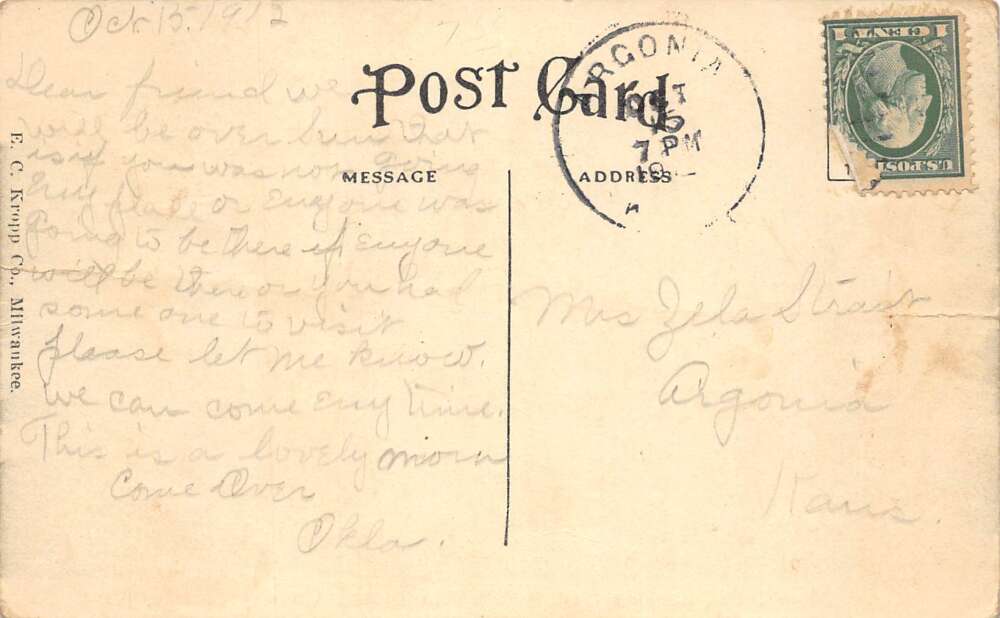 Oct 15. 1912
Dear friend we
will be over Sun that
is if you was not going
Eny place or Enyone was
going to be there if Enyone
will be there or you had
some one to visit
plaase let me know.
we can come Eny time.
This is a lovely morn
Come Over
Okla.
E. C. Kropp Co., Milwaukee.
Post Card
MESSAGE
ADDRESS
ARGONIA
OCT
7 PM
19
1 CENT 1
U.S. POST
Mrs Zela Strait
Argonia
Kans.